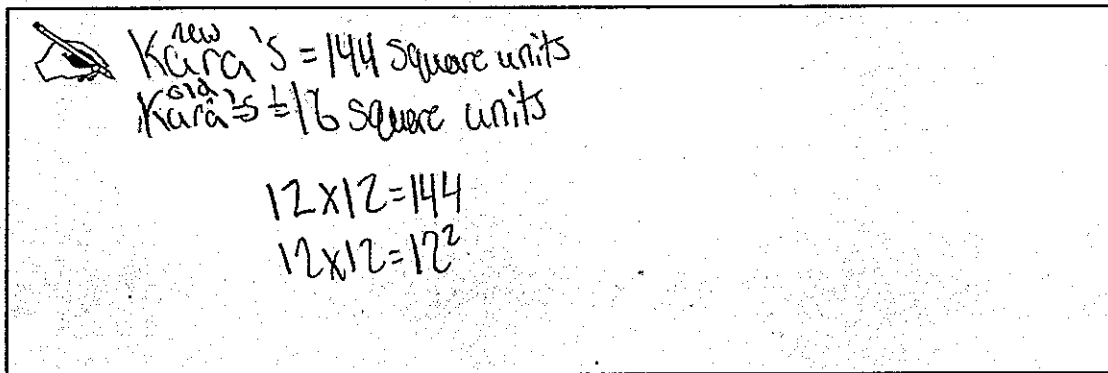 new
Kara's = 144 square units
old
Kara's = 16 square units
12x12=144
12x12=12²